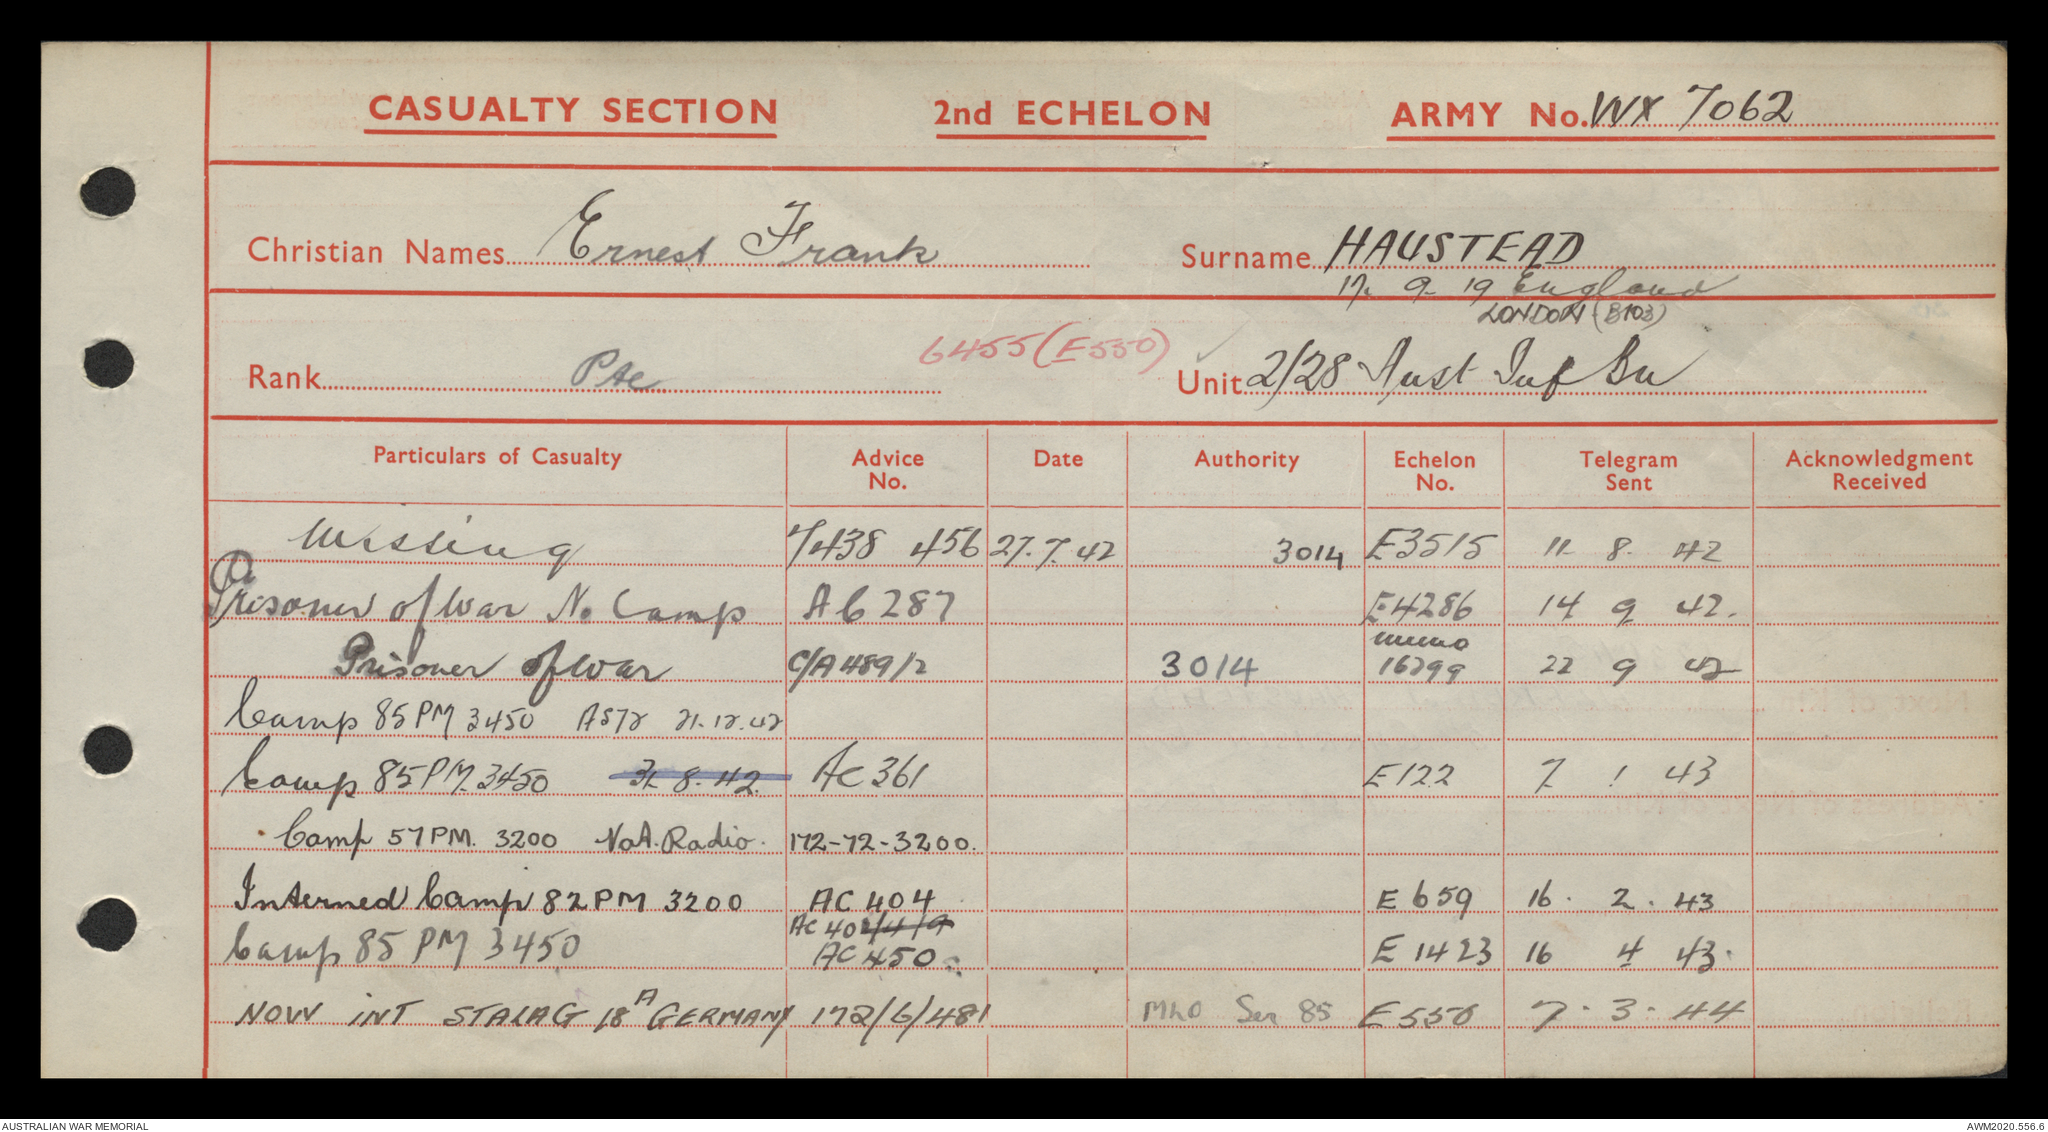 CASUALTY SECTION 2nd ECHELON ARMY No. WX 7062
Christian Names Ernest Frank Surname HAUSTEAD
17. 9. 19 England
LONDON (B103)
6455 (E550)
Rank Pte Unit 2/28 Aust Inf Bn
Particulars of Casualty Advice No. Date Authority Echelon No. Telegram Sent Acknowledgment Received
Missing 7/438 456 27.7.42 3014 E3515 11 8. 42
Prisoner of War N. Camp A6287 E4286 14 9 42.
memo
Prisoner of War C/A489/2 3014 16299 22 9 42
Camp 85 PM 3450 A572 21.12.42
Camp 85 PM. 3450 31. 8. 42. AC 361 E122 7. 1 43
Camp 57 PM. 3200 Vat. Radio. 172-72-3200.
Interned Camp 82 PM 3200 AC 404 E 659 16. 2. 43
AC 402/4/9
Camp 85 PM 3450 AC 450 E 1423 16 4 43.
NOW INT STALAG 18 A GERMANY 172/6/481 MLO Ser 85 E550 7. 3. 44
AUSTRALIAN WAR MEMORIAL AWM2020.556.6